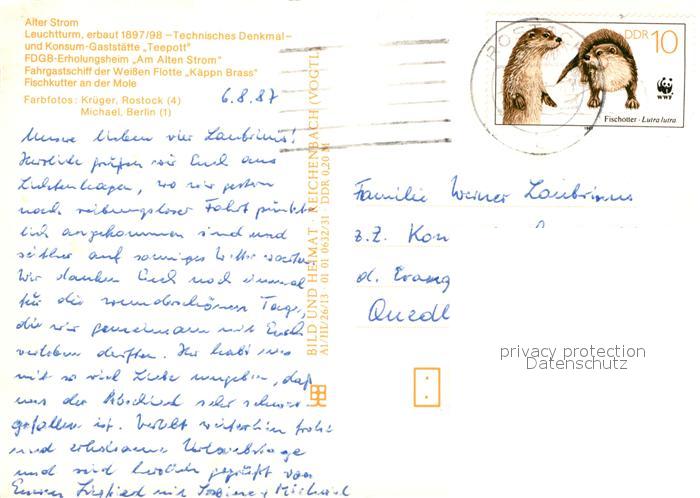 Alter Strom
Leuchtturm, erbaut 1897/98 –Technisches Denkmal–
und Konsum-Gaststätte „Teepott"
FDGB-Erholungsheim „Am Alten Strom"
Fahrgastschiff der Weißen Flotte „Käppn Brass"
Fischkutter an der Mole
Farbfotos: Krüger, Rostock (4)
Michael, Berlin (1)
6.8.87
Unsere lieben vier
Herzliche grüßen wir Euch aus
Lichtenhagen, wo wir gestern
nach reibungsloser Fahrt pünkt-
lich angekommen sind und
seither auf sonniges Wetter warten.
Wir danken Euch noch einmal
für die wunderschönen Tage,
die wir gemeinsam mit Euch
verleben durften. Ihr habt uns
mit so viel Liebe umgeben, daß
uns der Abschied sehr schwer
gefallen ist. Verlebt weiterhin frohe
und erholsame Urlaubstage
und seid herzlich gegrüßt von
Euren mit Michael
BILD UND HEIMAT · REICHENBACH (VOGTL
A1/III/26/13 · 01 01 0632/31 · DDR 0,20 M
ROSTOCK
DDR 10
WWF
Fischotter · Lutra lutra
Familie Werner
z.Z. Kon
d. Evang
Quedl
privacy protection
Datenschutz